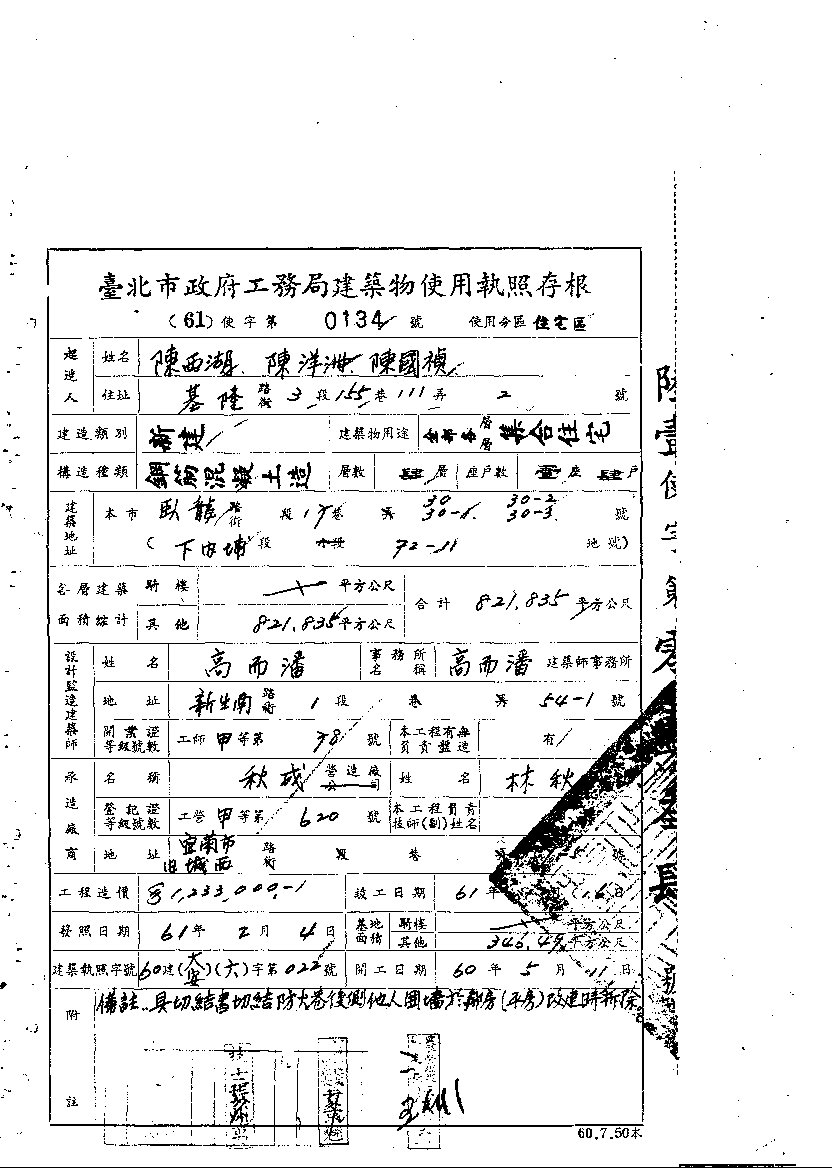 臺北市政府工務局建築物使用執照存根
(61)使字第 0134 號 使用分區 住宅區
起造人 姓名 陳西湖、陳洋洲、陳國禎
住址 基隆 路街 3 段 155 巷 111 弄 2 號
建造類別 新建 建築物用途 全部各層層 集合住宅
構造種類 鋼筋混凝土造 層數 肆層 座戶數 壹座 肆戶
建築地址 本市 臥龍 路街 段 17 巷 弄 30 30-1 30-2 30-3 號
(下內埔段 小段 72-11 地號)
各層建築面積總計 騎樓 平方公尺 合計 821,835 平方公尺
其他 821,835 平方公尺
設計監造建築師 姓名 高而潘 事務所名稱 高而潘 建築師事務所
地址 新生南 路街 1 段 巷 弄 54-1 號
開業證等級號數 工師 甲等第 78 號 本工程有無負責監造 有
承造廠商 名稱 秋成 營造廠公司 姓名 林秋
登記證等級號數 工營 甲等第 620 號 本工程負責技師(副)姓名
地址 宜蘭市旧城西 路街 段 巷 號
工程造價 1,233,000.- 竣工日期 61年 16日
發照日期 61年 2月 4日 基地面積 騎樓 平方公尺
其他 346,49 平方公尺
建築執照字號 60建(大安)(六)字第022號 開工日期 60年 5月 11日
附註 備註:具切結書切結防火巷後側他人圍墻於鄰房(平房)改建時拆除
60.7.50本
陸壹使字第零